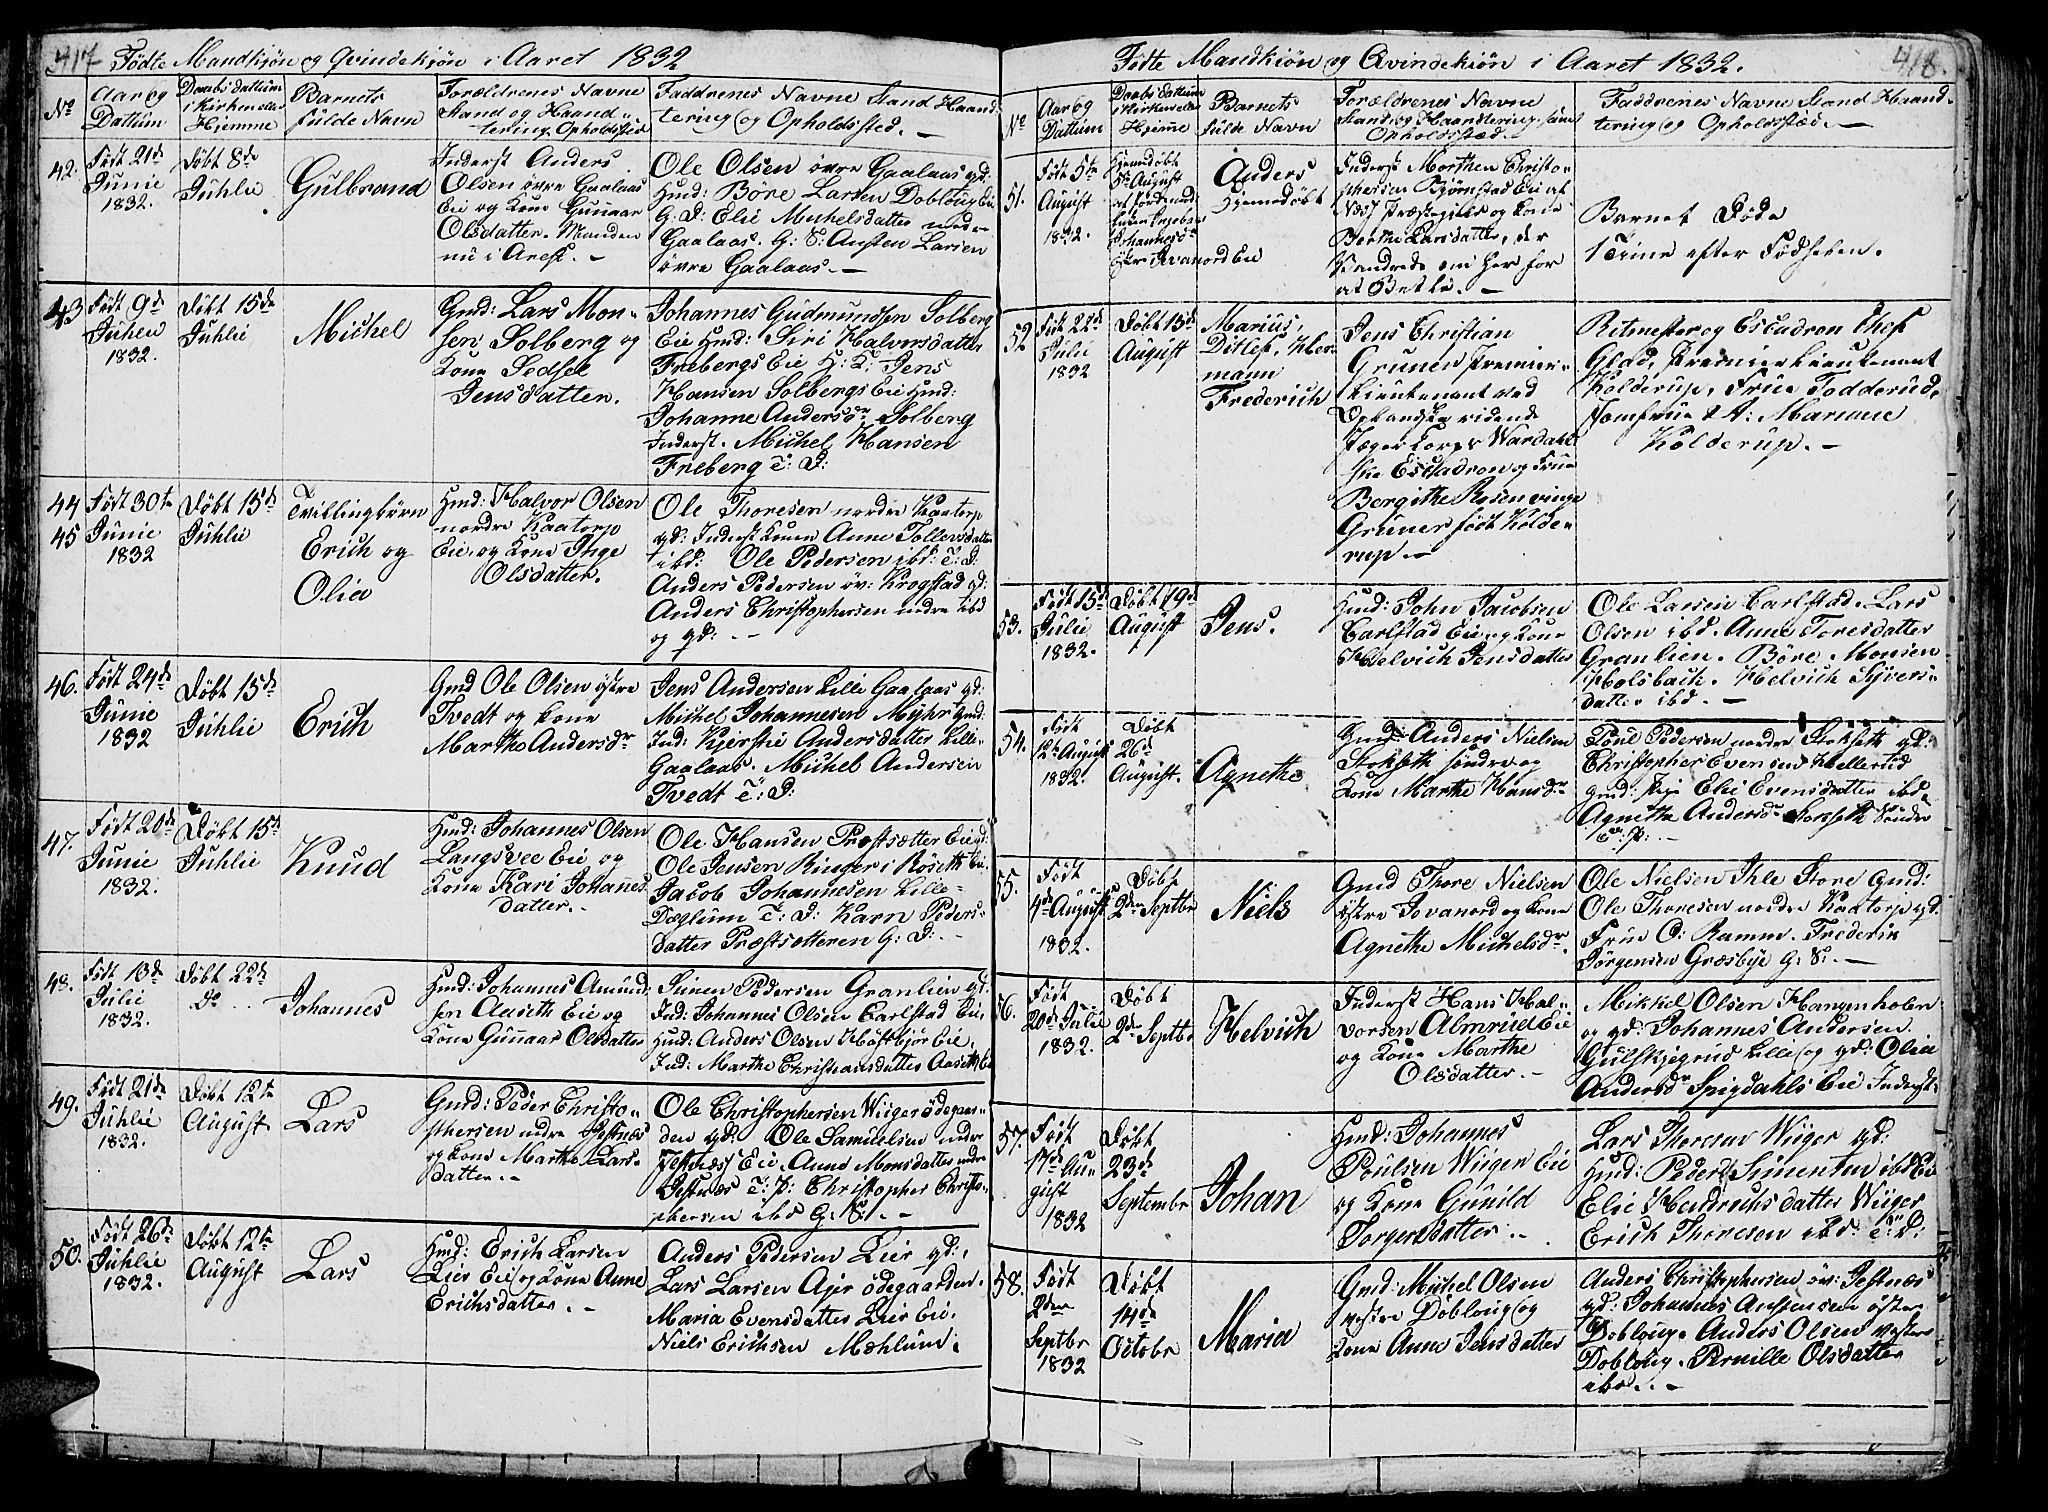 417 Fødte Mandkjøn og Qvindekjøn i Aaret 1832
No
Aar og
Dattum
Daabs dattum
i Kirken eller
Hjemme
Barnets
fulde Navn
Forældrenes Navne
Stand og Haand-
tering, Opholdssted
Faddrenes Navne Stand Haand-
tering og Opholdssted.
42.
Født 21de
Junie
1832.
Døbt 8de
Juhlie
Gulbrand
Inderst Anders
Olsen øvre Gaalaas
Eie og Kone Gunnar
Olsdatter. Manden
nu i Arest.
Ole Olsen øvre Gaalaas gd:
Hmd: Børe Larsen Dobloug Eie
G: D: Elie Michelsdatter nedre
Gaalaas. G: S: Austen Larsen
øvre Gaalaas.
43
Født 9de
Juhlen
1832.
Døbt 15de
Juhlie
Michel
Gmd: Lars Mon-
sen Solberg og
Kone Sedsel
Jensdatter.
Johannes Gudmundsen Solberg
Eie Hmd: Siri Halvorsdatter
Frebergs Eie H: K: Jens
Hansen Solbergs Eie Hmd:
Johanne Andersdr Solberg
Inderst. Michel Hansen
Freberg T: D:
44
45
Født 30te
Junie
1832
Døbt 15de
Juhlie
Tvillingbørn
Erich og
Olia
Hmd: Halvor Olsen
nordre Kaatorp
Eie og Kone Inge
Olsdatter.
Ole Thoresen nordre Kaatorp
gd: Inderst Konen Anne Tollevsdatter
ibd: Ole Pedersen ibd: T: D:
Anders Pedersen øv: Krogstad gd:
Anders Christophersen nedre ibd
og gd:
46.
Født 24de
Junie
1832
Døbt 15de
Juhlie
Erich
Gmd Ole Olsen østre
Tvedt og Kone
Marthe Andersdr
Jens Andersen Lille Gaalaas gd:
Michel Johannesen Myhr Gmd:
Ind: Kjerstie Andersdatter Lille-
Gaalaas. Michel Andersen
Tvedt T: D:
47.
Født 20de
Junie
1832.
Døbt 15de
Juhlie
Knud
Hmd: Johannes Olsen
Langsvee Eie og
Kone Kari Johannes
datter.
Ole Hansen Prestsætter Eie gd:
Ole Jensen Ringer i Røseth Eie.
Jacob Johannesen Lille-
Dæglum T: D: Karn Peders-
datter Præstsætteren G: D:
48.
Født 13de
Julie
1832.
Døbt 22de
Do
Johannes
Hmd: Johannes Amund
sen Aaseth Eie og
Kone Gunnaar Olsdatter
Simen Pedersen Granlien gd.
Ind: Johannes Olsen Carlstad Eie,
Hmd: Anders Olsen Høstbjør Eie,
Ind: Marthe Christiansdatter Aaseth Eie
49.
Født 21de
Juhlie
1832.
Døbt 12te
August
Lars
Gmd: Peder Christo-
phersen nedre Jestnes
og Kone Marthe Lars-
datter.
Ole Christophersen Wiger ødegaar-
den gd: Ole Samuelsen nedre
Jestnæss Eie. Anne Monsdatter nedre
Jestnæs T: P: Christopher Christo-
phersen ibd G: S:
50.
Født 26de
Juhlie
1832.
Døbt 12te
August
Lars
Hmd: Erich Larsen
Lier Eie og Kone Anne
Erichsdatter.
Anders Pedersen Lier gd:,
Lars Larsen Ajer ødegaarden.
Maria Evensdatter Lier Eie.
Niels Erichsen Mæhlum.
Fødte Mandkiøn og Qvindekiøn i Aaret 1832. 418.
No
Aar og
Dattum
Daabs Dattum
i Kirken eller
Hjemme
Barnets
fulde Navn
Forældrenes Navne
Stand og Haandtering samt
Opholdssted.
Faddrenes Navne Stand Haand-
tering og Opholdssted.
51.
Født 5te
August
1832.
Hjemdøbt
5te August
Johannesdr
Jevanord Eie
Anders
Hjemdøbt
Inderst Morthen Christo-
phersen Bjørnstad Eie at
Næss Præstegield og Kone
Berthe Larsdatter, der
Vandrede om her for
at Betle.
Barnet Døde
1 Time efter Fødselen.
52
Født 22de
Julie
1832
Døbt 15de
August
Marius,
Ditlef, Her-
mann
Frederich
Jens Christian
Gruner Premier-
Lieutenant ved
Oplandske ridende
Jæger Corps Wardahl
ske Escadron og Frue
Bergithe Rosenvinge
Gruner født Kolde-
rup.
Ritmester og Escadron Chef
Glad, Premier Lieutenant
Kolderup, Frue Todderud,
Jomfrue A: Mariane
Kolderup.
53.
Født 15de
Julie
1832.
Døbt 19de
August
Jens.
Hmd: John Jacobsen
Carlstad Eie og Kone
Helvich Jensdatter
Ole Larsen Carlstad. Lars
Olsen ibd. Anne Toresdatter
Granlien. Børe Monsen
Holsbach. Helvich Syvers-
datter ibd.
54.
Født
12te August
1832.
Døbt
26de
August.
Agnethe
Gmd: Anders Nielsen
Stokseth søndre og
Kone Marthe Hansdr
Poul Pedersen nordre Stokseth gd:
Christopher Evensen Hellerud
Gmd: Pige Elie Evensdatter ibd.
Agnethe Andersdr Stokseth Søndre
T: P:
55.
Født
4de August
1832.
Døbt
2den Septbr
Niels
Gmd Thore Nielsen
østre Jovanord og Kone
Agnethe Michelsdr
Ole Nielsen Ihle Store Gmd:
Ole Thoresen nordre Kaatorp gd.
Frue O: Ramm. Frederik
Jørgensen Græsbye G: S:
56.
Født
20de Julie
1832.
Døbt
2den Septbr
Helvich
Inderst Hans Hal-
vorsen Almrud Eie
og Kone Marthe
Olsdatter.
Mikkel Olsen Hangenholen
og gd: Johannes Andersen
Gulskjegrud Lille og gd: Olia
Andersdr Spigdahls Eie Inderst.
57.
Født
17de Au-
gust
1832
Døbt
23de
Septembr
Johan
Hmd: Johannes
Poulsen Wiigen Eie
og Kone Gunild
Torgersdatter.
Lars Thoresen Wiger gd:
Hmd: Peder Simensen ibd Eie
Elie Hendrichsdatter Wiiger
Erich Thoresen ibd: T: D:
58.
Født
2den
Septbr
1832
Døbt
14de
Octobr
Maria
Gmd: Michel Olsen
vestre Doblough og
Kone Anne Jensdatter
Anders Christophersen øv: Jestnæs
gd: Johannes Austensen østre
Dobloug. Anders Olsen vestre
Dobloug. Pernille Olsdatter
ibd.